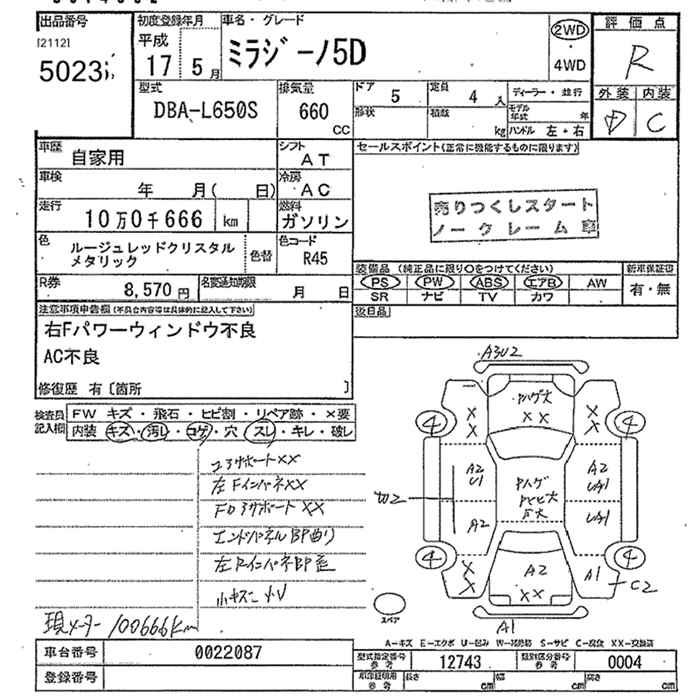 出品番号
[2112]
5023
初度登録年月
平成
17 5月
車名・グレード
ミラジーノ5D
2WD
・
4WD
評価点
R
外装 内装
D C
型式
DBA-L650S
排気量
660
CC
ドア 5
定員 4 人
形状
積載 kg
ディーラー・並行
モデル年式 年
ハンドル 左・右
車歴 自家用
シフト AT
車検 年 月( 日)
冷房 AC
走行 10万0千666 km
燃料 ガソリン
色 ルージュレッドクリスタル
メタリック
色替
色コード R45
R券 8,570円
名変通知期限 月 日
セールスポイント(正常に機能するものに限ります)
売りつくしスタート
ノークレーム車
装備品 (純正品に限り○をつけてください)
PS PW ABS エアB AW
SR ナビ TV カワ
新車保証書
有・無
後日品
注意事項申告欄(不具合内容等は具体的に記入して下さい)
右Fパワーウィンドウ不良
AC不良
修復歴 有〔箇所 〕
検査員記入欄
FW キズ・飛石・ヒビ割・リペア跡・×要
内装 キズ・汚レ・コゲ・穴・スレ・キレ・破レ
コアサポートXX
左FインパネXX
エンドパネルBP曲り
現メーター100666km
A3U2
Pハゲ大
XX
XX
XX
4
4
A2
U1
A2
Pハゲ
A2
UA1
UA1
4
4
XX
A2
XX
A1
C2
A1
スペア
A-キズ E-エクボ U-凹み W-補修跡 S-サビ C-腐食 XX-交換済
車台番号 0022087
登録番号
型式指定番号参考 12743
類別区分番号参考 0004
長さ cm
幅 cm
高さ cm